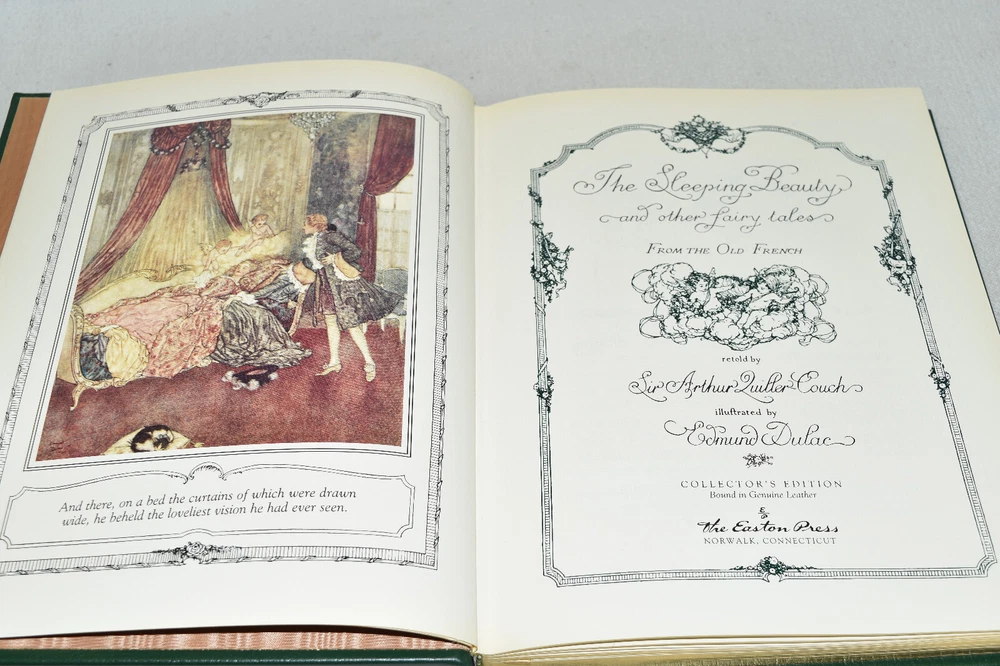 And there, on a bed the curtains of which were drawn
wide, he beheld the loveliest vision he had ever seen.
The Sleeping Beauty
and other fairy tales
FROM THE OLD FRENCH
retold by
Sir Arthur Quiller-Couch
illustrated by
Edmund Dulac
COLLECTOR'S EDITION
Bound in Genuine Leather
The Easton Press
NORWALK, CONNECTICUT